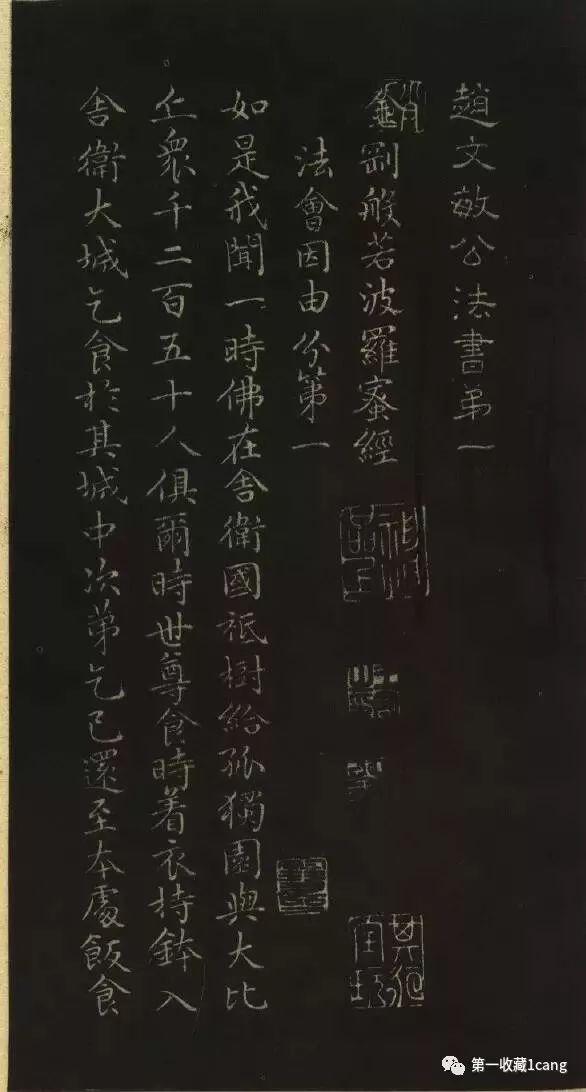 趙文敏公法書第一
金剛般若波羅蜜經
法會因由分第一
如是我聞一時佛在舍衛國祇樹給孤獨園與大比
丘衆千二百五十人俱爾時世尊食時着衣持鉢入
舍衛大城乞食於其城中次第乞已還至本處飯食
第一收藏1cang